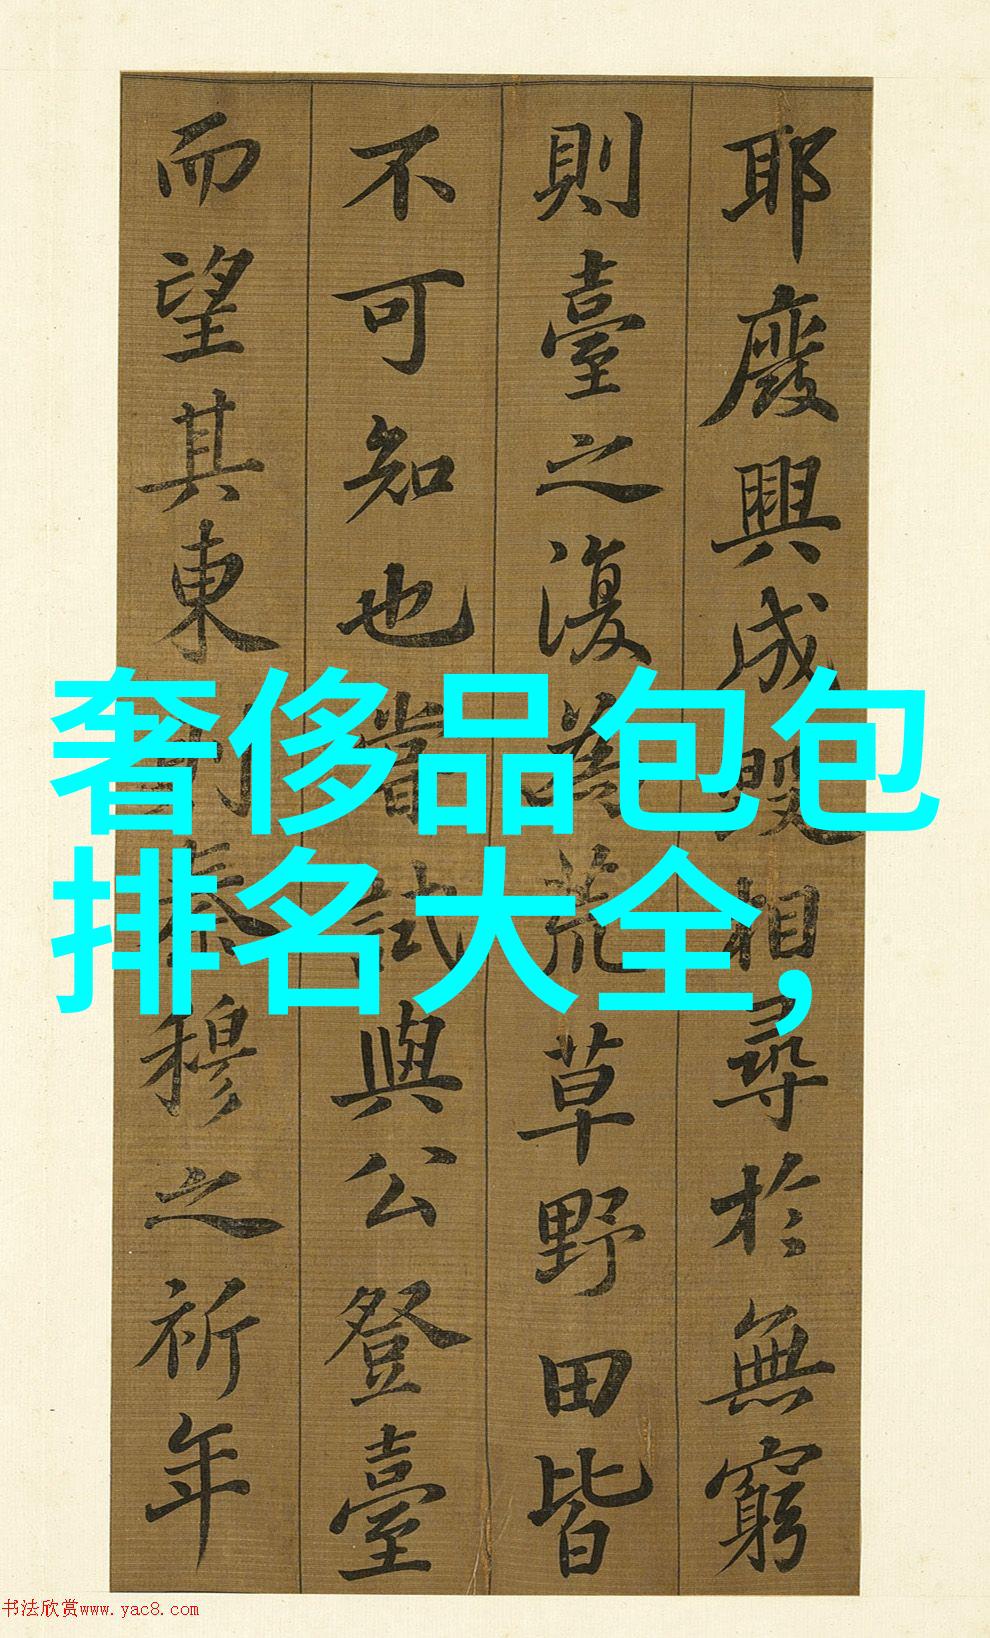 耶廢興成毀相尋於無窮
則臺之復為荒草野田皆
不可知也嘗試與公登臺
而望其東則秦穆之祈年
奢侈品包包
排名大全,
书法欣赏www.yac8.com